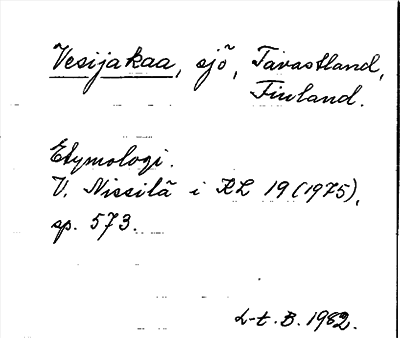 Vesijakaa, sjö, Tavastland,
Finland.
Etymologi.
V. Nissilä i RL 19 (1975),
sp. 573.
L-t. B. 1982.